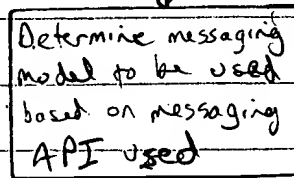 Determine messaging
model to be used
based on messaging
API used